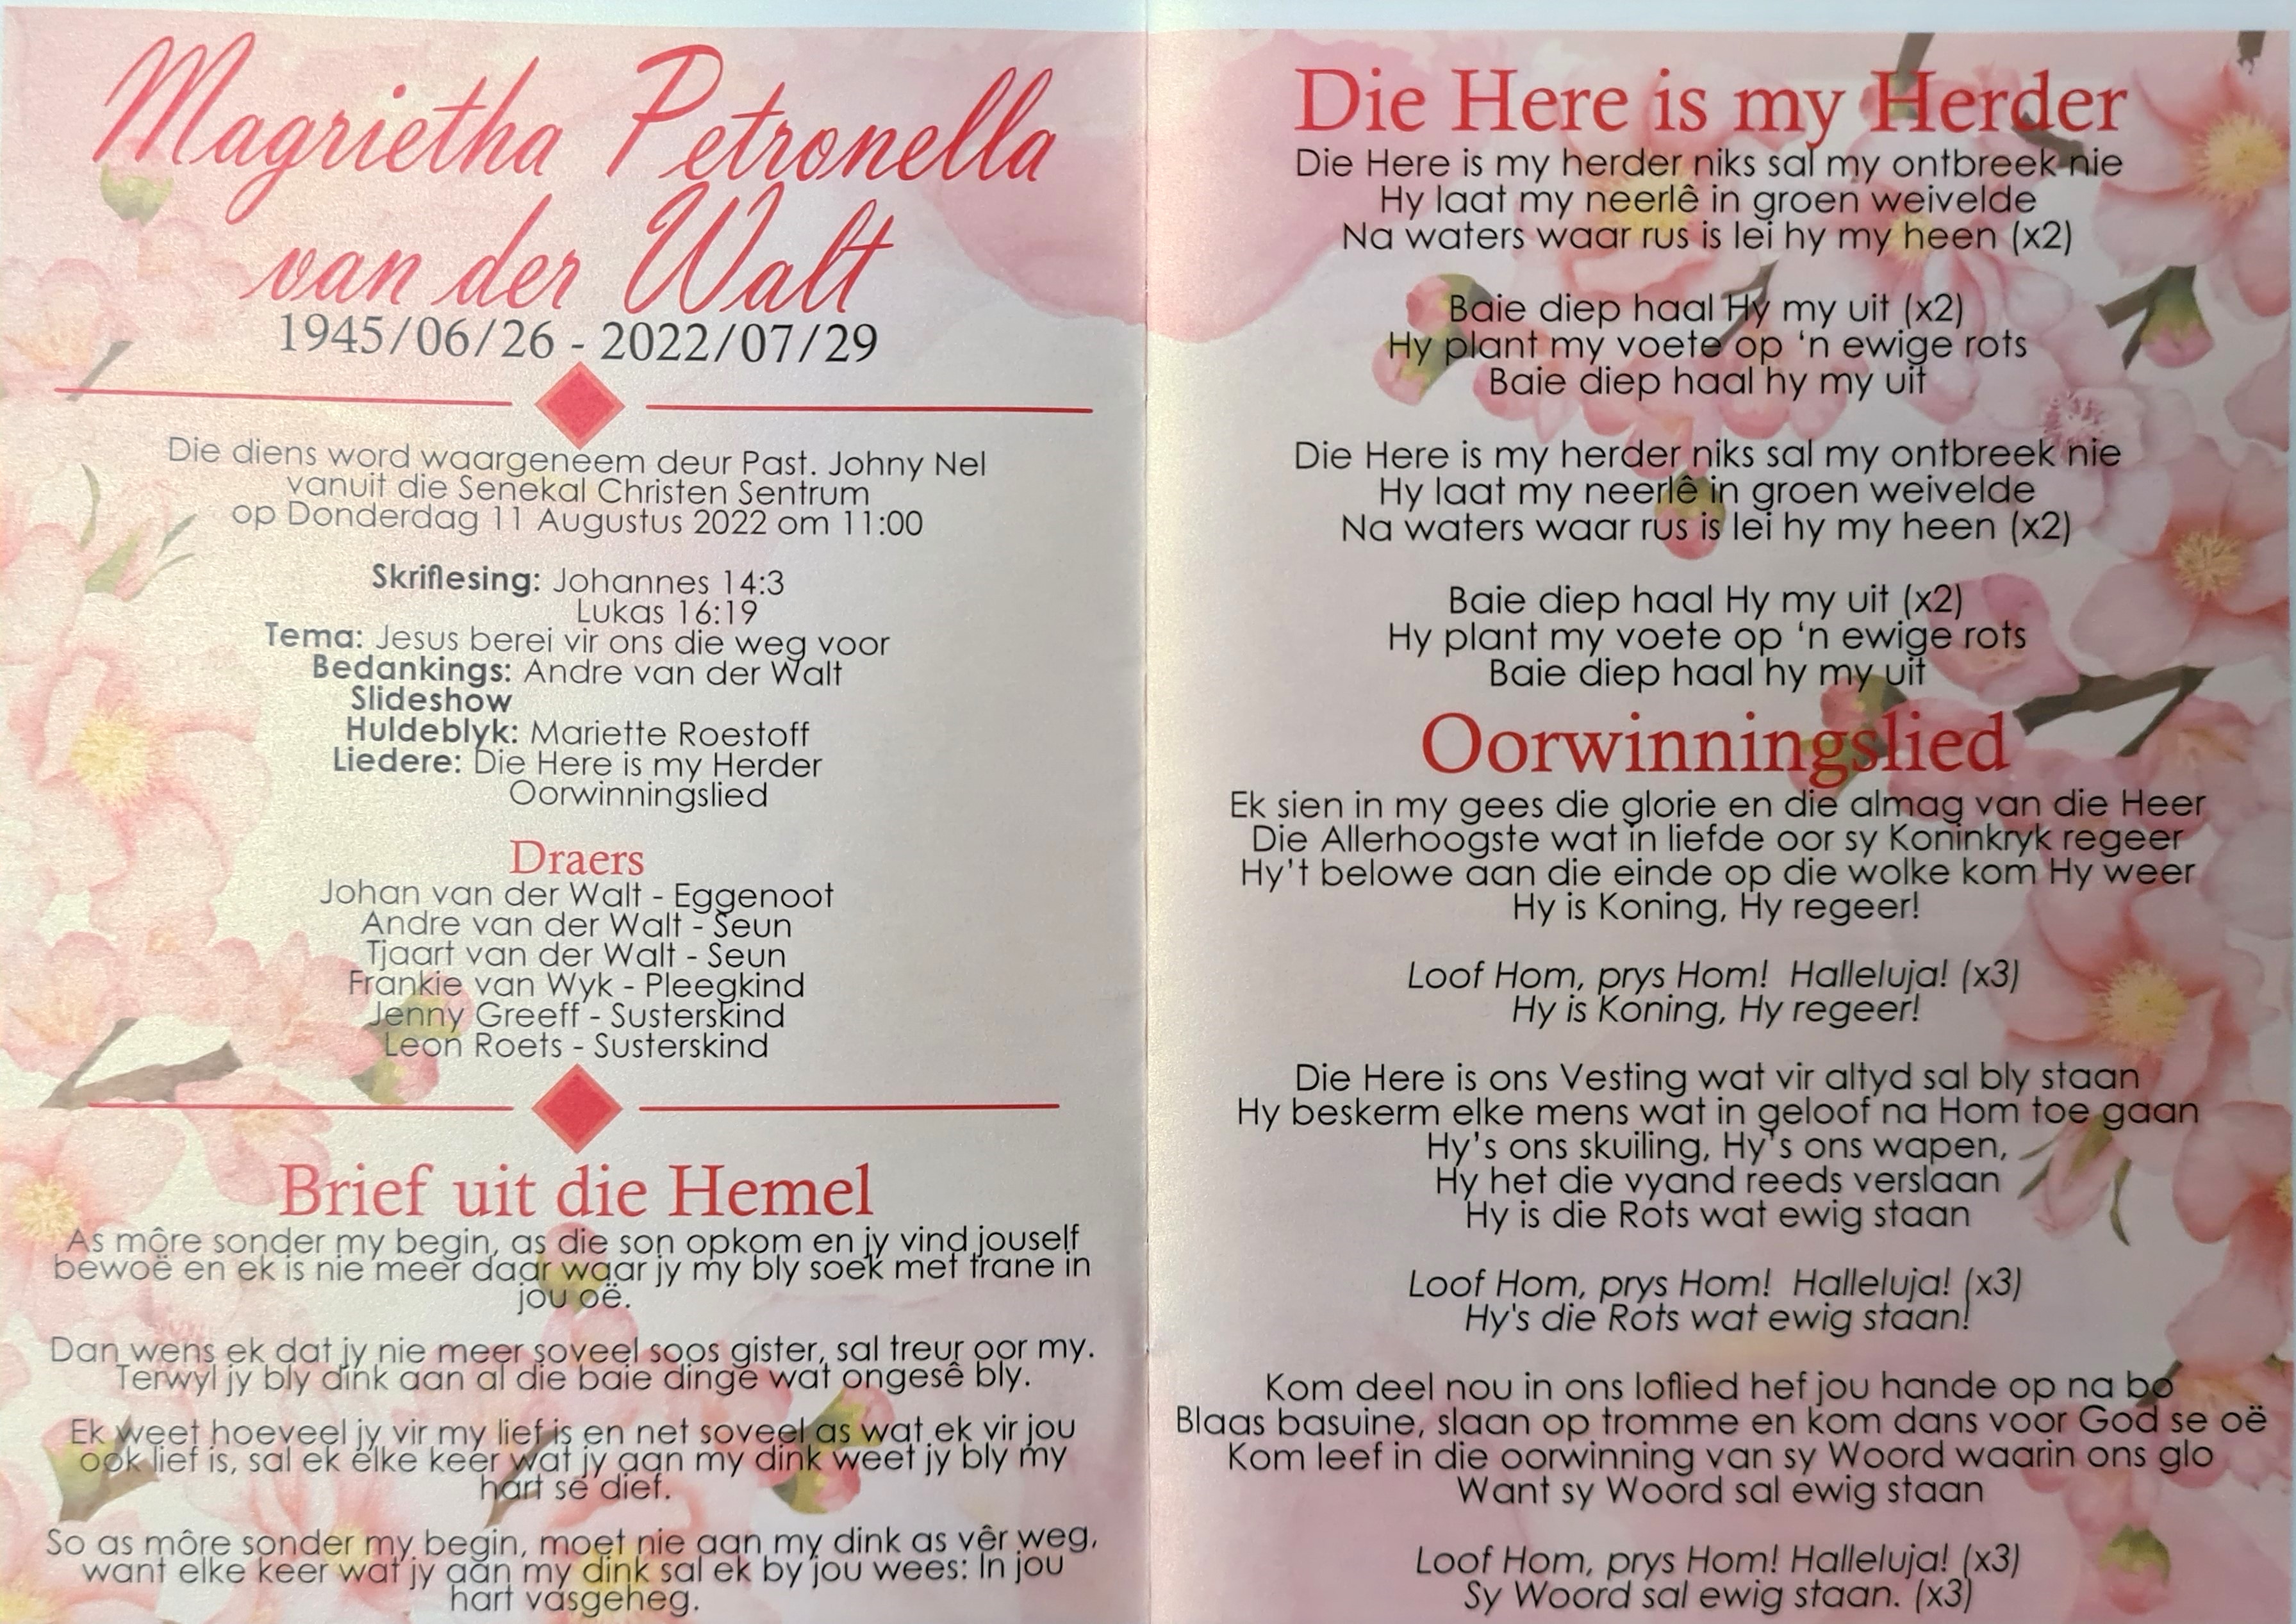 Magrietha Petronella
van der Walt
1945/06/26 - 2022/07/29
Die diens word waargeneem deur Past. Johny Nel
vanuit die Senekal Christen Sentrum
op Donderdag 11 Augustus 2022 om 11:00
Skriflesing: Johannes 14:3
Lukas 16:19
Tema: Jesus berei vir ons die weg voor
Bedankings: Andre van der Walt
Slideshow
Huldeblyk: Mariette Roestoff
Liedere: Die Here is my Herder
Oorwinningslied
Draers
Johan van der Walt - Eggenoot
Andre van der Walt - Seun
Tjaart van der Walt - Seun
Frankie van Wyk - Pleegkind
Jenny Greeff - Susterskind
Leon Roets - Susterskind
Brief uit die Hemel
As môre sonder my begin, as die son opkom en jy vind jouself
bewoë en ek is nie meer daar waar jy my bly soek met trane in
jou oë.
Dan wens ek dat jy nie meer soveel soos gister, sal treur oor my.
Terwyl jy bly dink aan al die baie dinge wat ongesê bly.
Ek weet hoeveel jy vir my lief is en net soveel as wat ek vir jou
ook lief is, sal ek elke keer wat jy aan my dink weet jy bly my
hart se dief.
So as môre sonder my begin, moet nie aan my dink as vêr weg,
want elke keer wat jy aan my dink sal ek by jou wees: In jou
hart vasgeheg.
Die Here is my Herder
Die Here is my herder niks sal my ontbreek nie
Hy laat my neerlê in groen weivelde
Na waters waar rus is lei hy my heen (x2)
Baie diep haal Hy my uit (x2)
Hy plant my voete op ‘n ewige rots
Baie diep haal hy my uit
Die Here is my herder niks sal my ontbreek nie
Hy laat my neerlê in groen weivelde
Na waters waar rus is lei hy my heen (x2)
Baie diep haal Hy my uit (x2)
Hy plant my voete op ‘n ewige rots
Baie diep haal hy my uit
Oorwinningslied
Ek sien in my gees die glorie en die almag van die Heer
Die Allerhoogste wat in liefde oor sy Koninkryk regeer
Hy’t belowe aan die einde op die wolke kom Hy weer
Hy is Koning, Hy regeer!
Loof Hom, prys Hom! Halleluja! (x3)
Hy is Koning, Hy regeer!
Die Here is ons Vesting wat vir altyd sal bly staan
Hy beskerm elke mens wat in geloof na Hom toe gaan
Hy’s ons skuiling, Hy’s ons wapen,
Hy het die vyand reeds verslaan
Hy is die Rots wat ewig staan
Loof Hom, prys Hom! Halleluja! (x3)
Hy's die Rots wat ewig staan!
Kom deel nou in ons loflied hef jou hande op na bo
Blaas basuine, slaan op tromme en kom dans voor God se oë
Kom leef in die oorwinning van sy Woord waarin ons glo
Want sy Woord sal ewig staan
Loof Hom, prys Hom! Halleluja! (x3)
Sy Woord sal ewig staan. (x3)